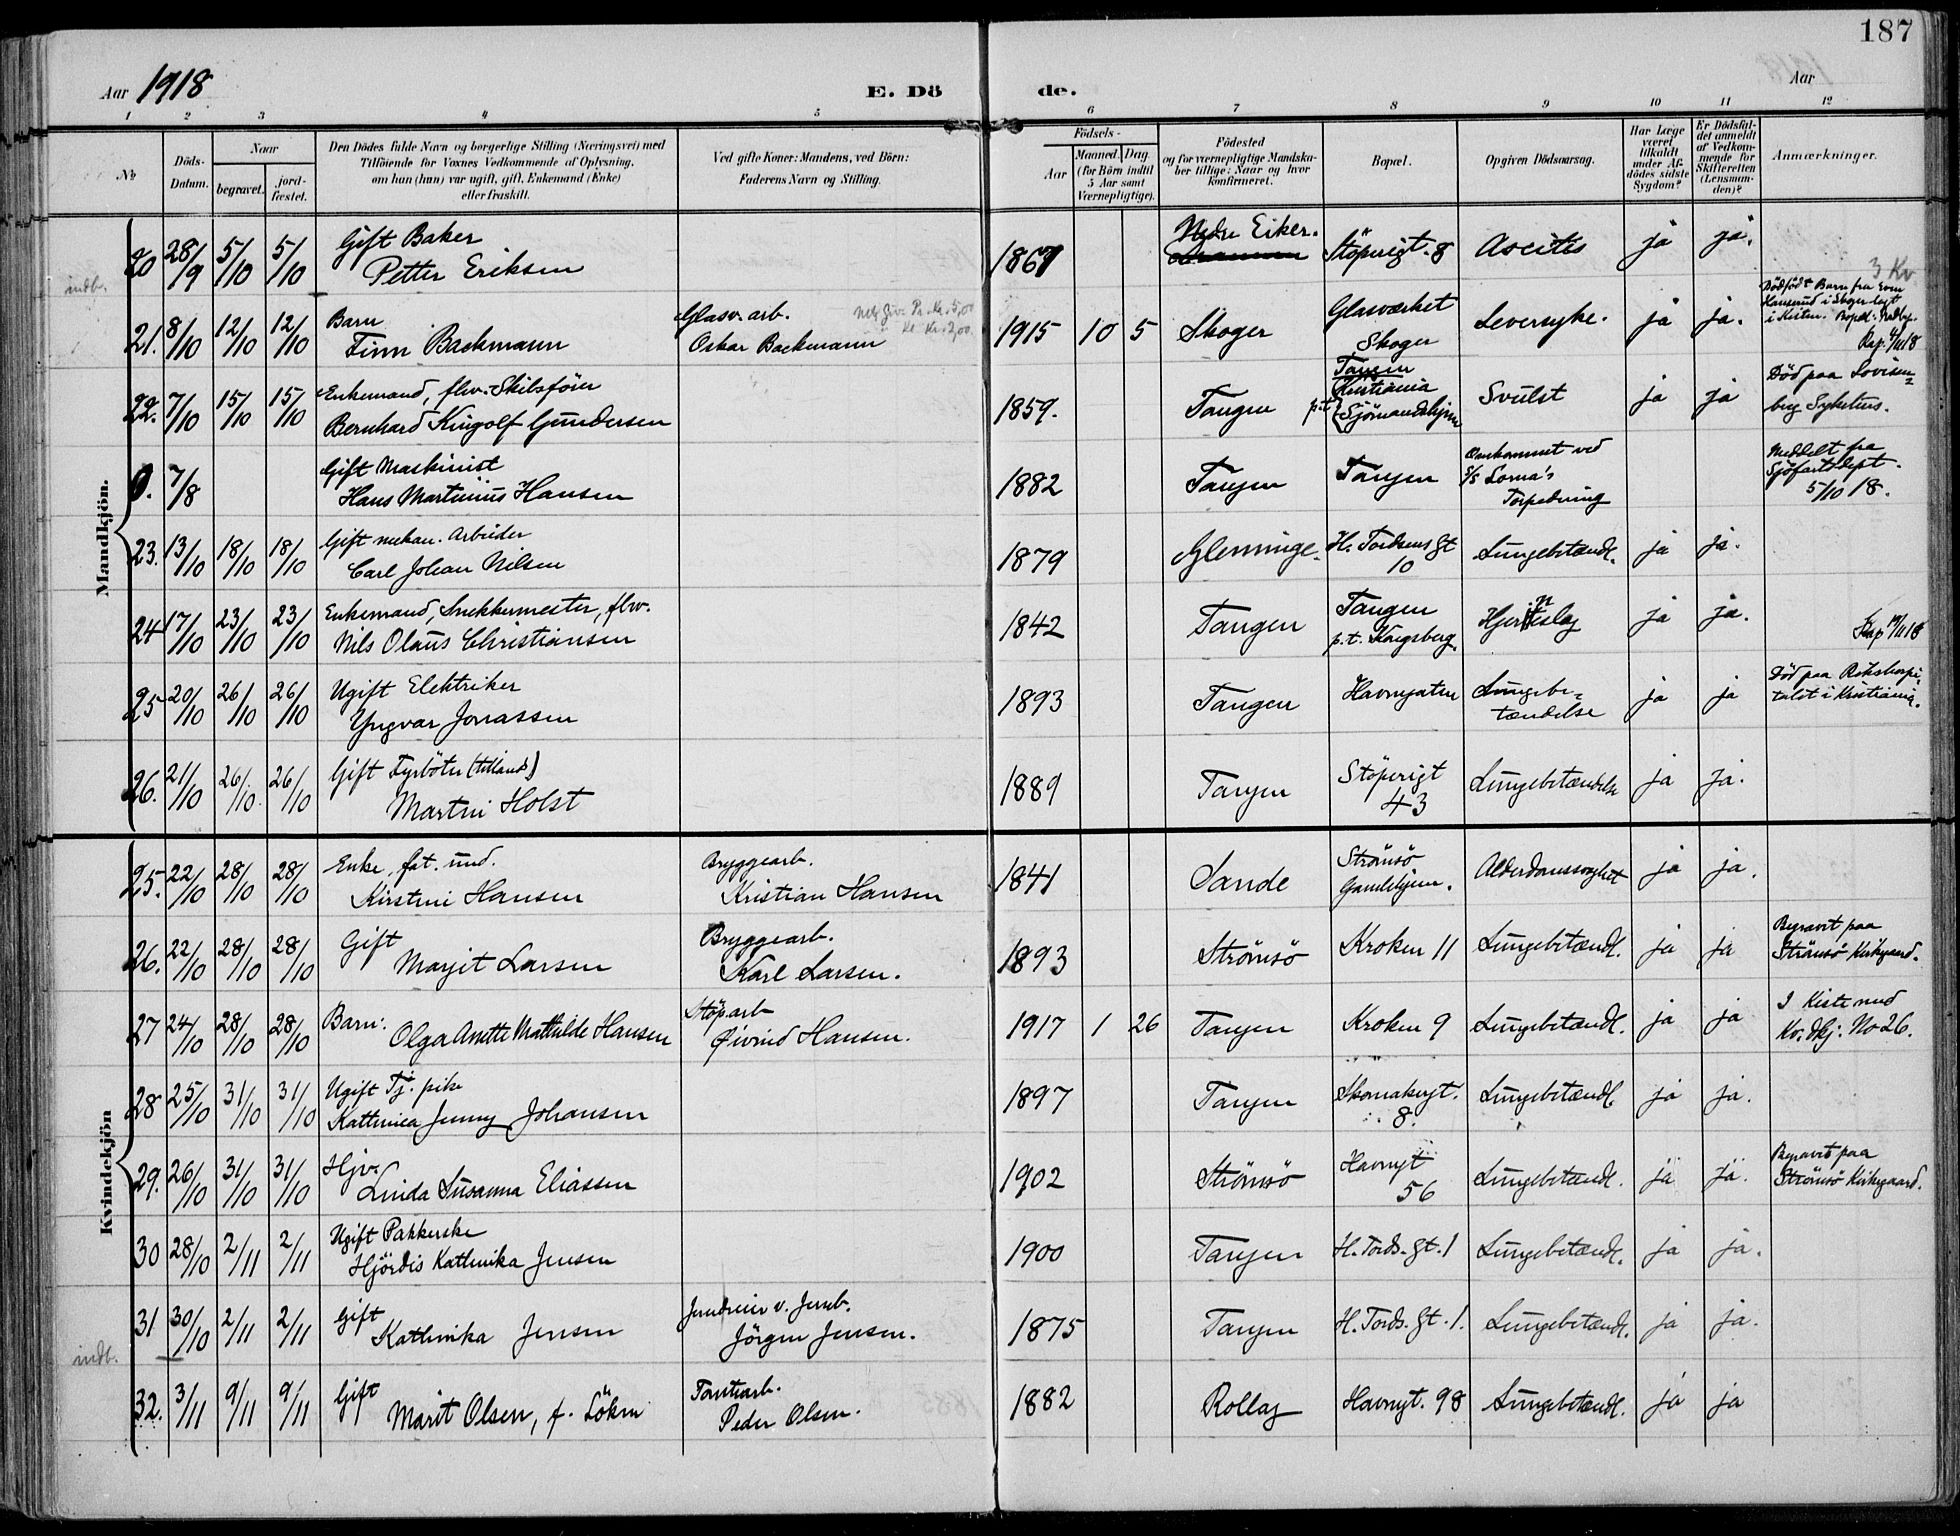 187
Aar 1918
E. Dö
de.
Aar
1 2 3 4 5 6 7 8 9 10 11 12
№
Döds-
Datum.
Naar
begravet.
jord-
fæstet.
Den Dödes fulde Navn og borgerlige Stilling (Næringsvei) med
Tilföiende for Voxnes Vedkommende af Oplysning,
om han (hun) var ugift, gift, Enkemand (Enke)
eller fraskilt.
Ved gifte Koner: Mandens, ved Börn:
Faderens Navn og Stilling.
Födsels-
Aar
Maaned.
Dag
(for Börn indtil
5 Aar samt
Værnepligtige).
Födested
og for værnepligtige Mandska-
ber tillige: Naar og hvor
konfirmeret.
Bopæl.
Opgiven Dödsaarsag.
Har Læge
været
tilkaldt
under Af-
dödes sidste
Sygdom?
Er Dödsfal-
det anmeldt
af Vedkom-
mende for
Skifteretten
(Lensman-
den)?
Anmærkninger.
Mandkjön.
20 28/9 5/10 5/10 Gift Baker
Petter Eriksen
1867 Nedre Eiker. Stöperigt. 8 Ascites ja ja.
indb.
3 Kv
21. 8/10 12/10 12/10 Barn
Finn Backmann
Glasv. arb.
Oskar Backmann
1915 10 5 Skoger Glasværket
Skoger
Leversyke. ja ja.
Dödfödt Barn fra
i Skoger lagt
i Kisten.
22. 7/10 15/10 15/10 Enkemand, flv. Skibsförer
Bernhard Kingolf Gundersen
1859. Tangen Tangen
p.t. Kristiania
Sjömandshjem
Svulst ja ja
Död paa Lovisen-
berg Sykehus.
0. 7/8 Gift Maskinist
Hans Martinius Hansen
1882 Tangen Tangen
Omkommet ved
S/S Lorna's
Torpedering
Meddelt fra
Sjöfartsdept.
5/10 18.
23. 13/10 18/10 18/10 Gift mekan. Arbeider
Carl Johan Nilsen
1879 Glemminge. H. Tordsens gt
10
Lungebetændl. ja ja.
24 17/10 23/10 23/10 Enkemand, Snekkermester, flv.
Nils Olaus Christiansen
1842 Tangen Tangen
p.t. Kongsberg.
ja ja.
25 20/10 26/10 26/10 Ugift Elektriker
Yngvar Jonassen
1893 Tangen Havnegaten Lungebe-
tændelse
ja ja
Död paa Rikshospi-
talet i Kristiania.
26. 21/10 26/10 26/10 Gift Fyrböter (tillands)
Martin Holst
1889 Tangen Stöperigt
43
Lungebetændelse ja ja.
Kvindekjön
25. 22/10 28/10 28/10 Enke, fat. und.
Kirstine Hansen
Bryggearb.
Kristian Hansen
1841 Sande Strömsö
Gamlehjem.
Alderdomssvaghet ja ja.
26. 22/10 28/10 28/10 Gift
Margit Larsen
Bryggearb.
Karl Larsen.
1893 Strömsö Kroken 11 Lungebetændl. ja ja
Begravet paa
Strömsö Kirkegaard.
27 24/10 28/10 28/10 Barn:
Olga Anette Mathilde Hansen
Stöp.arb
Øivind Hansen.
1917 1 26 Tangen Kroken 9 Lungebetændl. ja ja
I Kiste med
Kv.dkj. No 26.
28 25/10 31/10 31/10 Ugift Tj. pike
Kathinca Jenny Johansen
1897 Tangen Skomakergt.
8.
Lungebetændl. ja ja.
29. 26/10 31/10 31/10 Hjv.
Linda Susanna Eliassen
1902 Strömsö Havnegt
56
Lungebetændl. ja ja.
Begravet paa
Strömsö Kirkegaard.
30 28/10 2/11 2/11 Ugift Pakkerske
Hjördis Kathinka Jensen
1900 Tangen H. Tords. gt. 1 Lungebetændl. ja ja.
31 30/10 2/11 2/11 Gift
Kathinka Jensen
Jörgen Jensen.
1875 Tangen H. Tords. gt. 1. Lungebetændl. ja ja.
indb.
32. 3/11 9/11 9/11 Gift
Marit Olsen, f. Löken
Tomtearb.
Peder Olsen.
1882 Rollag Havnegt. 98 Lungebetændl. ja ja